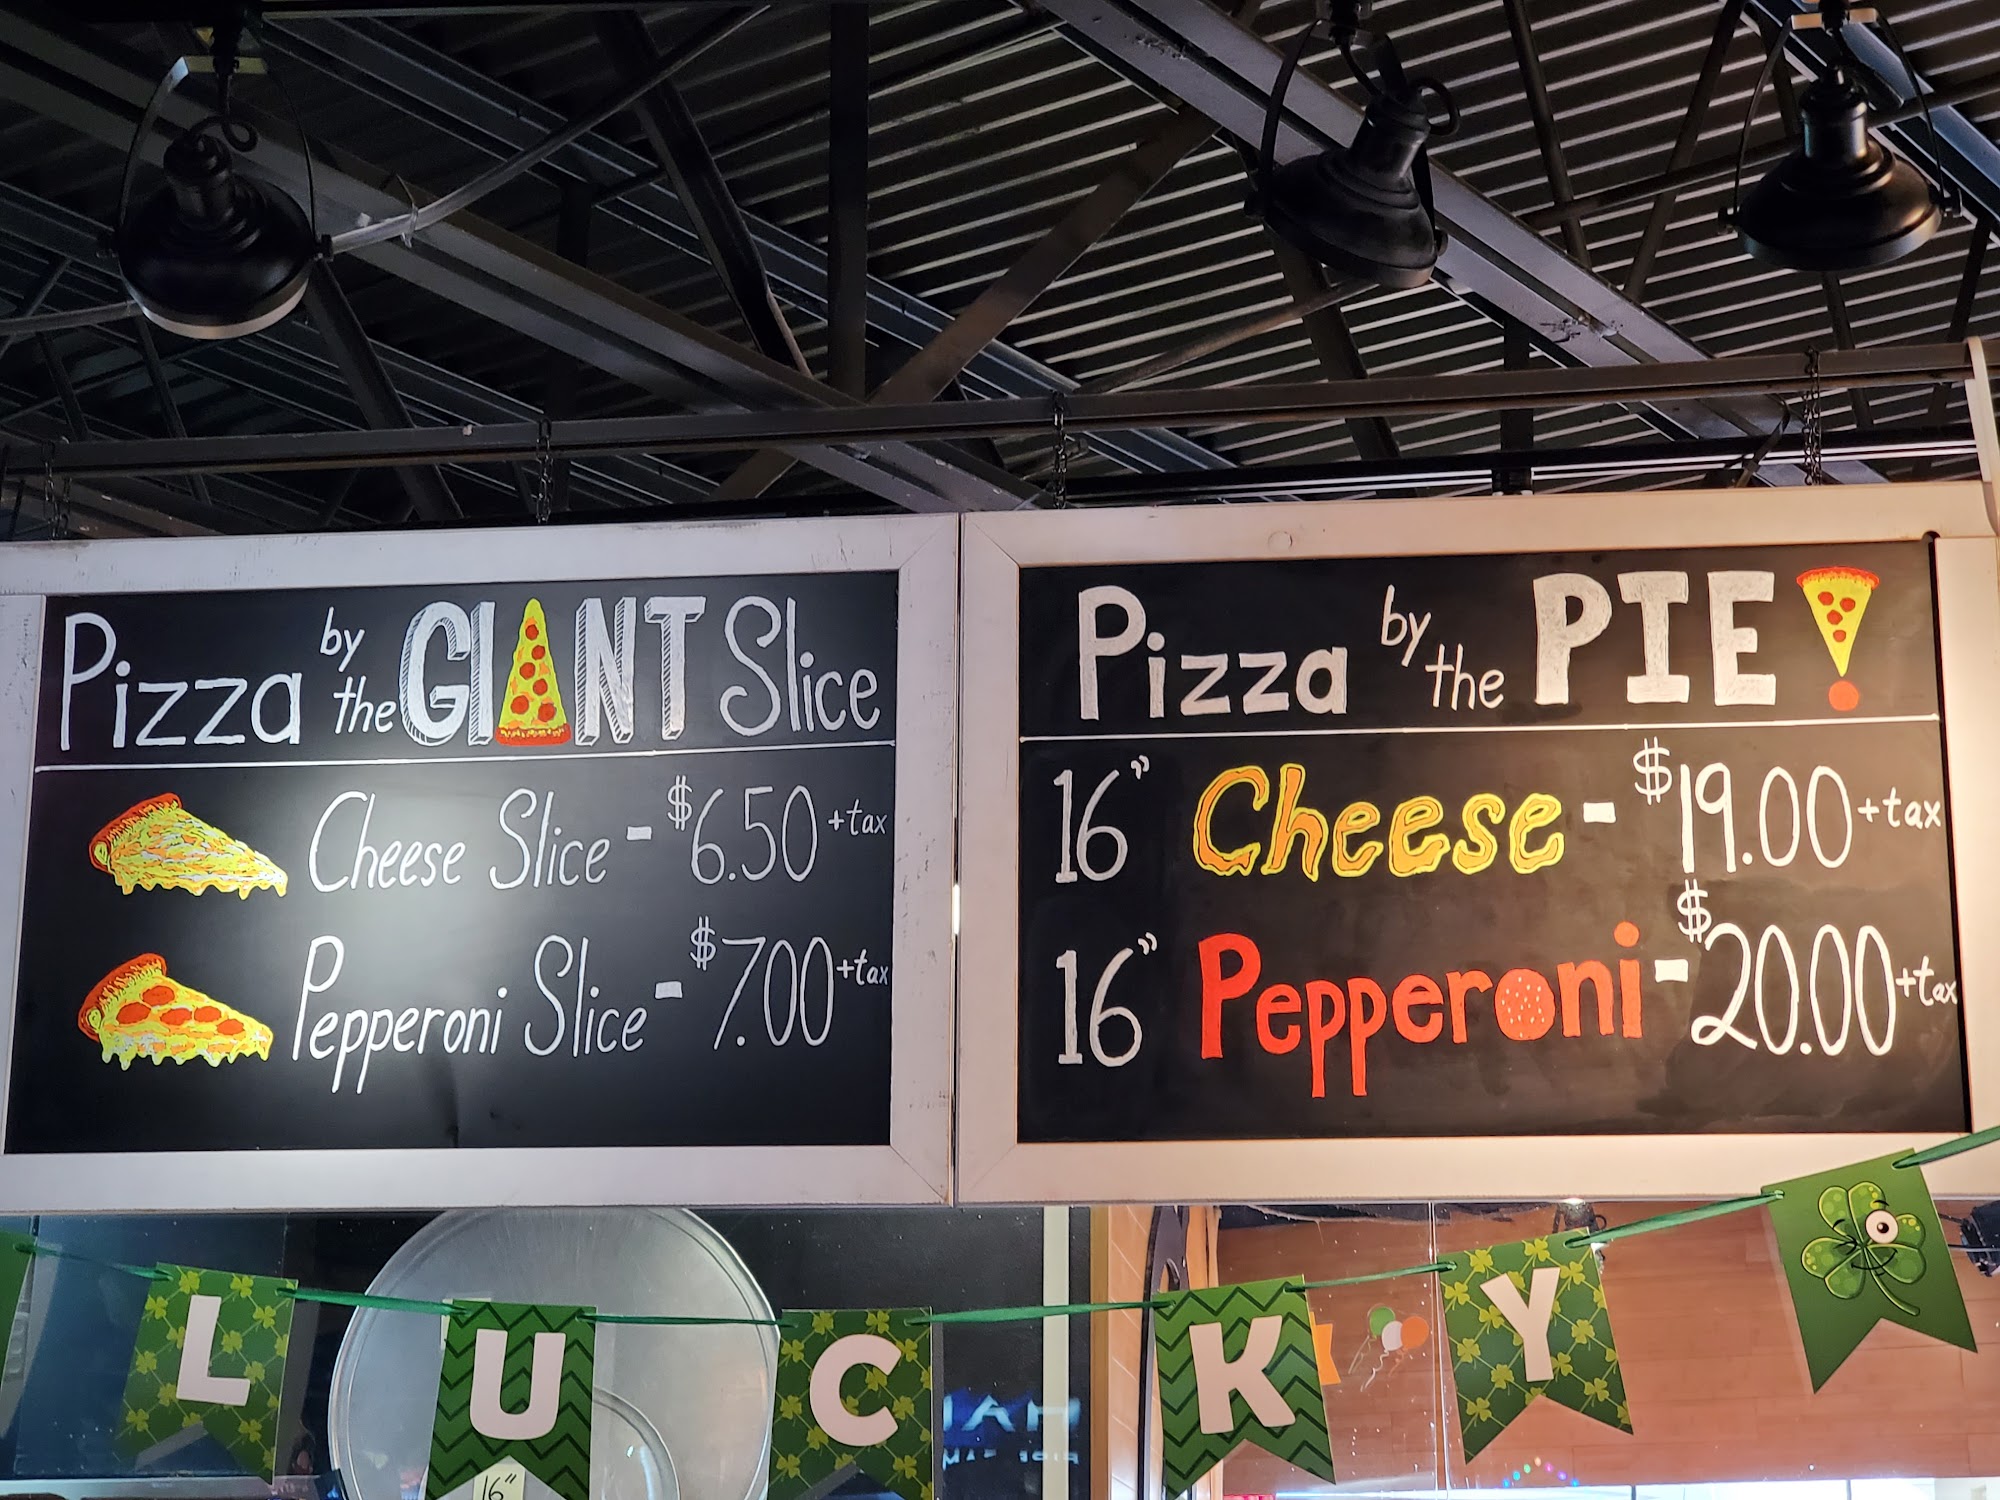 Pizza by the GIANT Slice
Cheese Slice - $6.50 +tax
Pepperoni Slice - $7.00 +tax
Pizza by the PIE!
16" Cheese - $19.00 +tax
16" Pepperoni - $20.00 +tax
LUCKY
16"